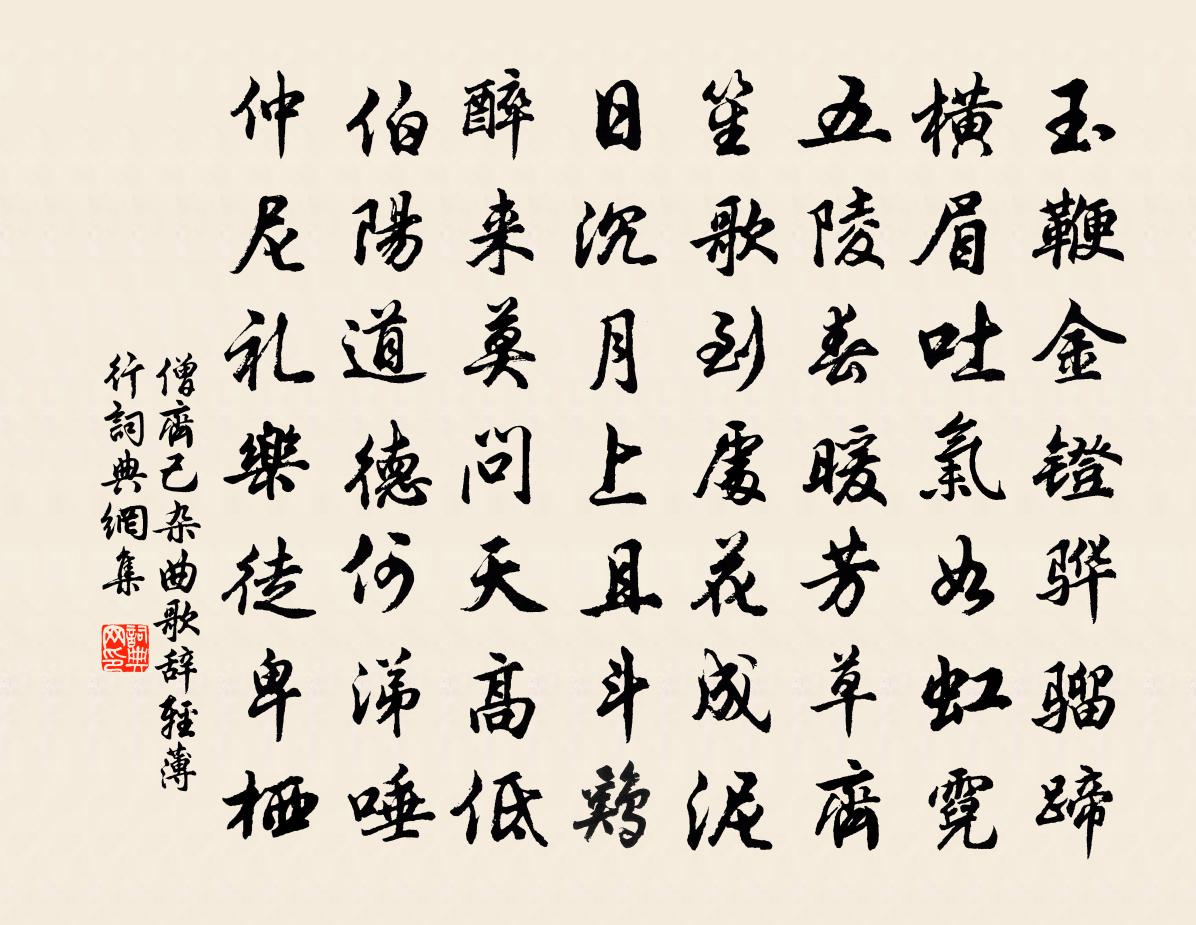 玉鞭金镫骅骝蹄
橫眉吐氣如虹霓
五陵春暖芳草齊
笙歌到處花成泥
日沉月上且斗鷄
醉来莫问天高低
伯陽道德何涕唾
仲尼礼樂徒卑栖
僧齊己杂曲歌辞輕薄
行詞典網集
詞典
网印